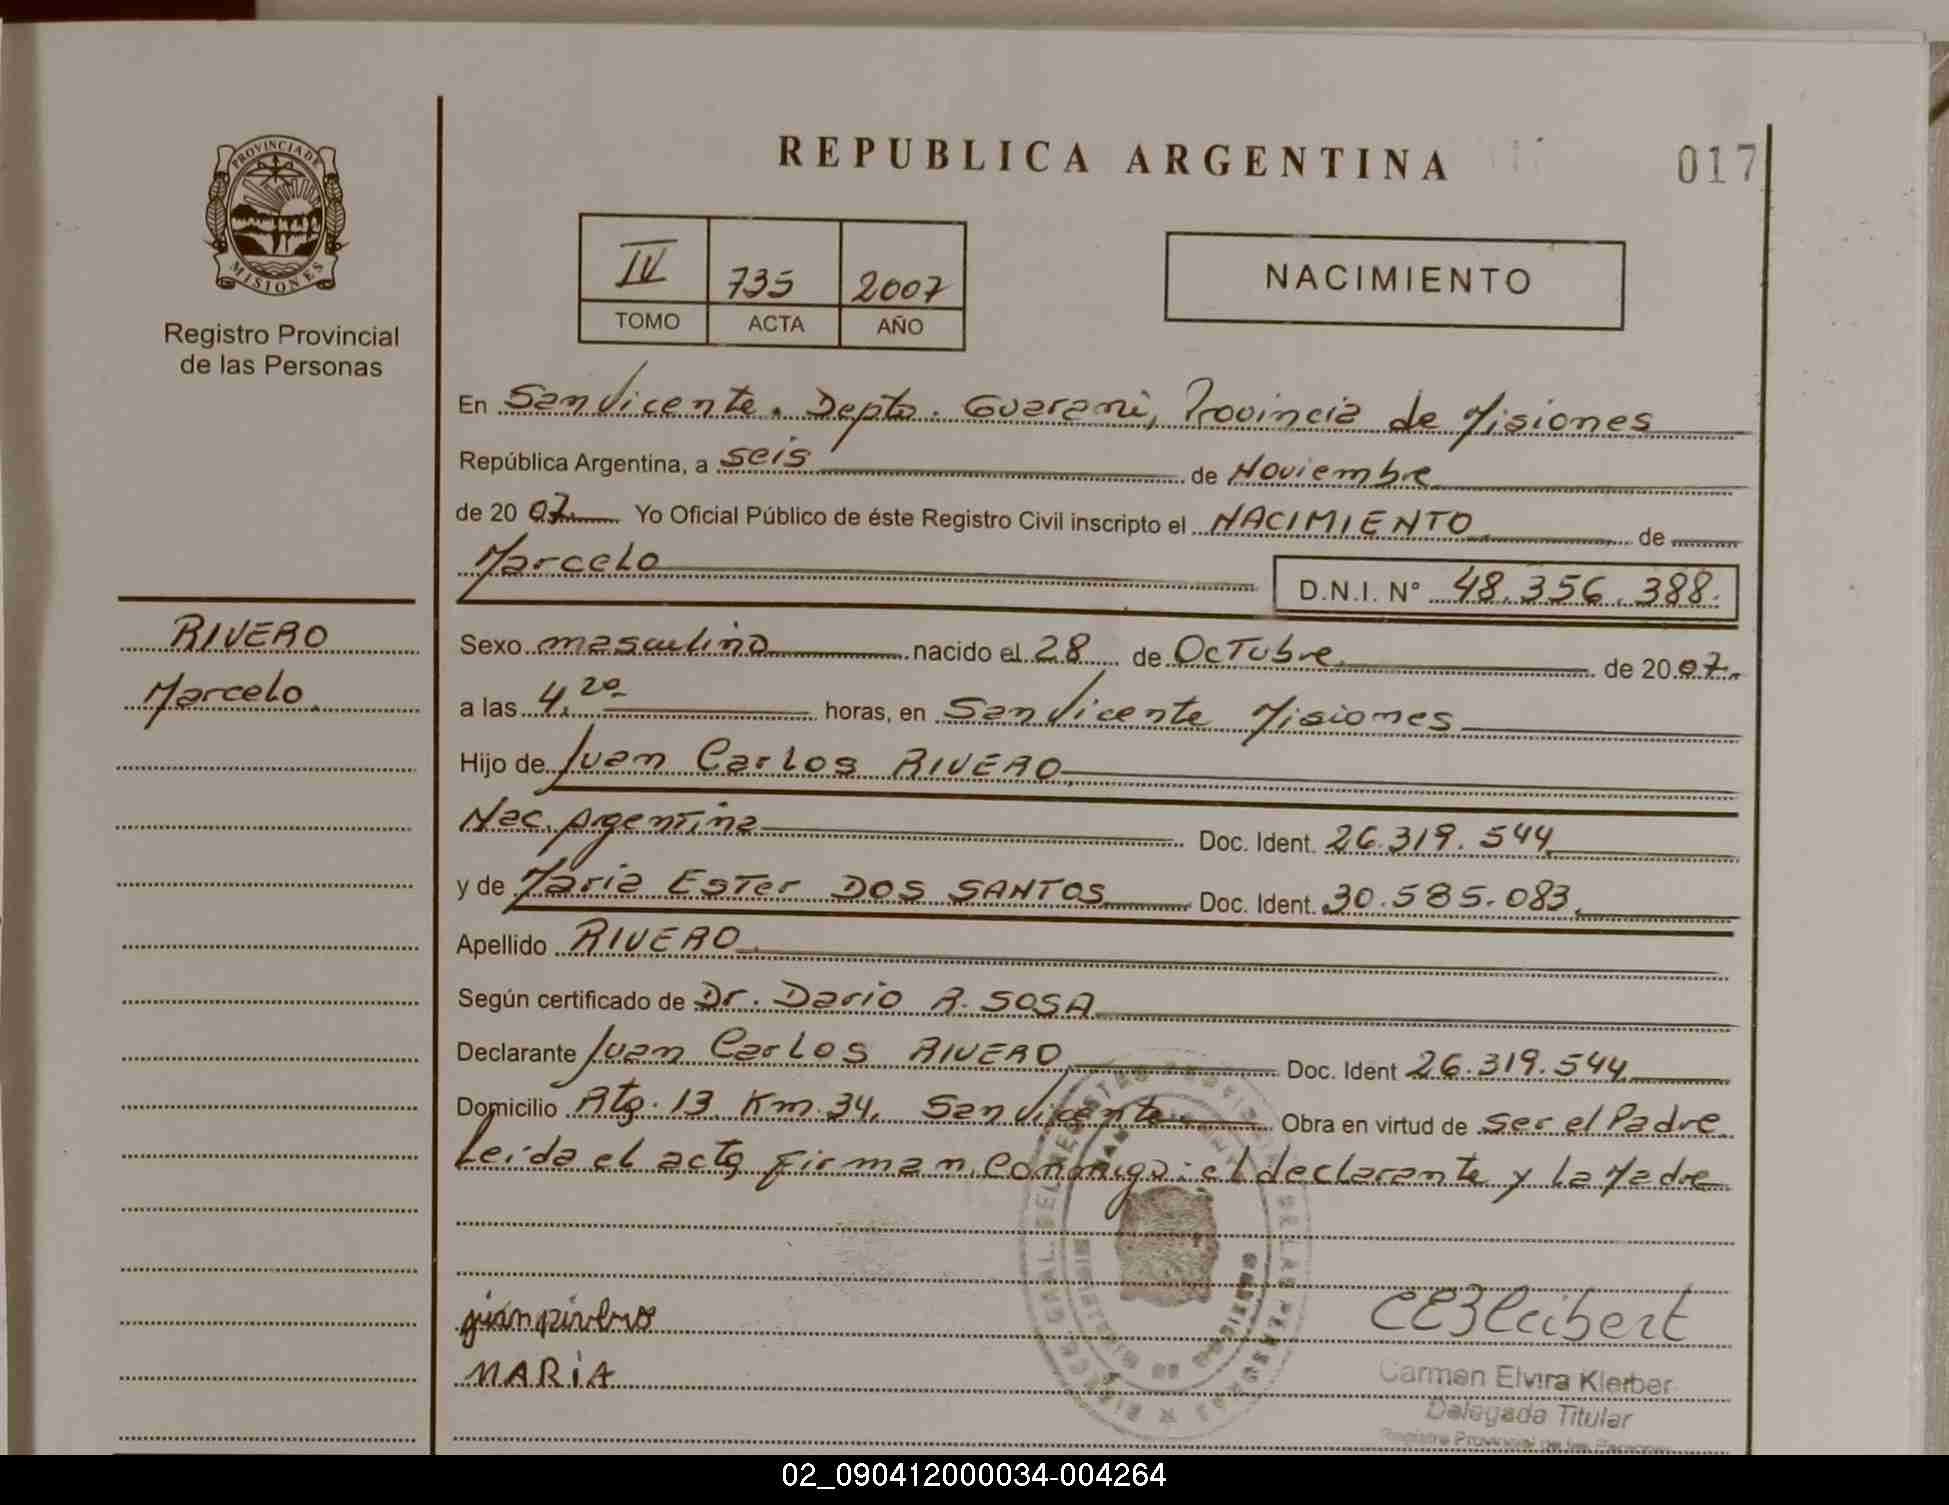 REPUBLICA ARGENTINA
017
PROVINCIA DE
MISIONES
Registro Provincial
de las Personas
IV 735 2007
TOMO ACTA AÑO
NACIMIENTO
RIVERO
Marcelo
En San Vicente. Depto. Guarani, Provincia de Misiones
República Argentina, a seis de Noviembre
de 20 07 Yo Oficial Público de éste Registro Civil inscripto el NACIMIENTO de
Marcelo D.N.I. N° 48.356.388.
Sexo masculino nacido el 28 de Octubre de 20 07.
a las 4,20 horas, en San Vicente Misiones
Hijo de Juan Carlos RIVERO
Nac. Argentina Doc. Ident. 26.319.544
y de Maria Ester DOS SANTOS Doc. Ident. 30.585.083
Apellido RIVERO
Según certificado de Dr. Dario R. SOSA
Declarante Juan Carlos RIVERO Doc. Ident 26.319.544
Domicilio Rta. 13 Km 34, San Vicente Obra en virtud de ser el Padre
Leida el acta firman conmigo: el declarante y la Madre
MARiA
Carmen Elvira Kleiber
Delegada Titular
Registro Provincial de las Personas
02_090412000034-004264